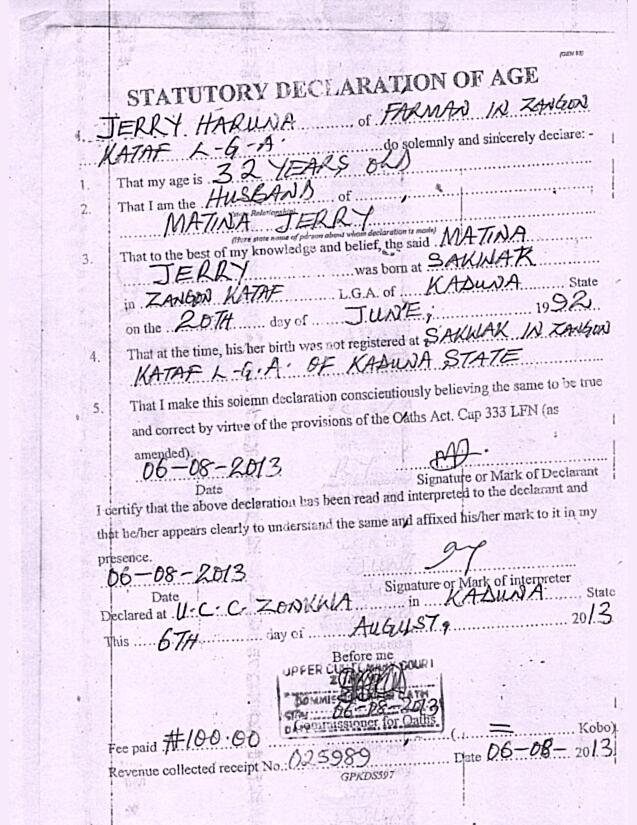 (GEN 93)
STATUTORY DECLARATION OF AGE
JERRY HARUNA of FARMAN IN ZANGON
KATAF L-G-A. do solemnly and sincerely declare: -
1. That my age is 32 YEARS OLD
2. That I am the HUSBAND of ,
MATINA JERRY
(Here state name of person about whom declaration is made)
3. That to the best of my knowledge and belief, the said MATINA
JERRY was born at SAKWAK
in ZANGON KATAF L.G.A. of KADUNA State
on the 20TH day of JUNE, 1992
4. That at the time, his/her birth was not registered at SAKWAK IN ZANGON
KATAF L-G-A. OF KADUNA STATE
5. That I make this solemn declaration conscientiously believing the same to be true
and correct by virtue of the provisions of the Oaths Act. Cap 333 LFN (as
amended).
06-08-2013
Date Signature or Mark of Declarant
I certify that the above declaration has been read and interpreted to the declarant and
that he/her appears clearly to understand the same and affixed his/her mark to it in my
presence.
06-08-2013
Date Signature or Mark of interpreter
Declared at U.C.C. ZONKWA in KADUNA State
This 6TH day of AUGUST, 2013
Before me
UPPER CUSTOMARY COURT
06-08-2013
Commissioner for Oaths
Fee paid ₦100.00 (= Kobo)
Revenue collected receipt No.: 025989 Date 06-08-2013
GPKDS597